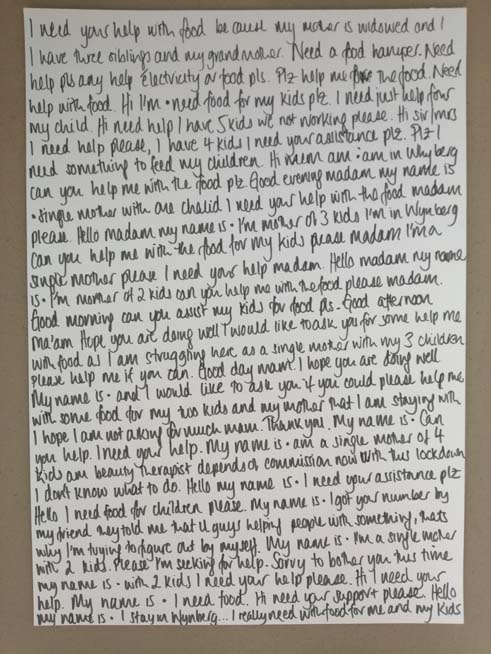 I need your help with food be cause my mother is widowed and I
I have three siblings and my grandmother. Need a food hamper. Need
help pls any help electricity or food pls. Plz help me for the food. Need
help with food. Hi I'm • need food for my kids plz. I need just help four
my child. Hi need help I have 5 kids we not working please. Hi sir/mrs
I need help please, I have 4 kids I need your assistance plz. Plz I
need something to feed my children. Hi mem am • am in Wnyberg
can you help me with the food plz. Good evening madam my name is
• single mother with one chalid I need your help with the food madam
please. Hello madam my name is • I'm mother of 3 kids I'm in Wynberg
can you help me with the food for my kids pease madam I'm a
single mother please I need your help madam. Hello madam my name
is • I'm mother of 2 kids can you help me with the food please madam.
Good morning can you assist my kids for food pls. Good afternoon
ma'am Hope you are doing well I would like to ask you for some help me
with food as I am struggling here as a single mother with my 3 children
please help me if you can. Good day mam. I hope you are doing well
My name is • and I would like to ask you if you could please help me
with some food for my too kids and my mother that I am staying with
I hope I am not asking for much mam. Thank you. My name is • Can
you help. I need your help. My name is • am a single mother of 4
kids am beauty therapist depends of commission now with this lockdown
I don't know what to do. Hello my name is • I need your assistance plz
Hello I need food for children please. My name is • I got your number by
my friend they told me that U guys helping people with something, thats
why I'm tuying to figure out by myself. My name is • I'm a single mother
with 2 kids. Please I'm seeking for help. Sorry to bother you this time
my name is • with 2 kids I need your help please. Hi I need your
help. My name is • I need food. Hi need your support please. Hello
my name is • I stay in Wynberg... I really need with food for me and my kids